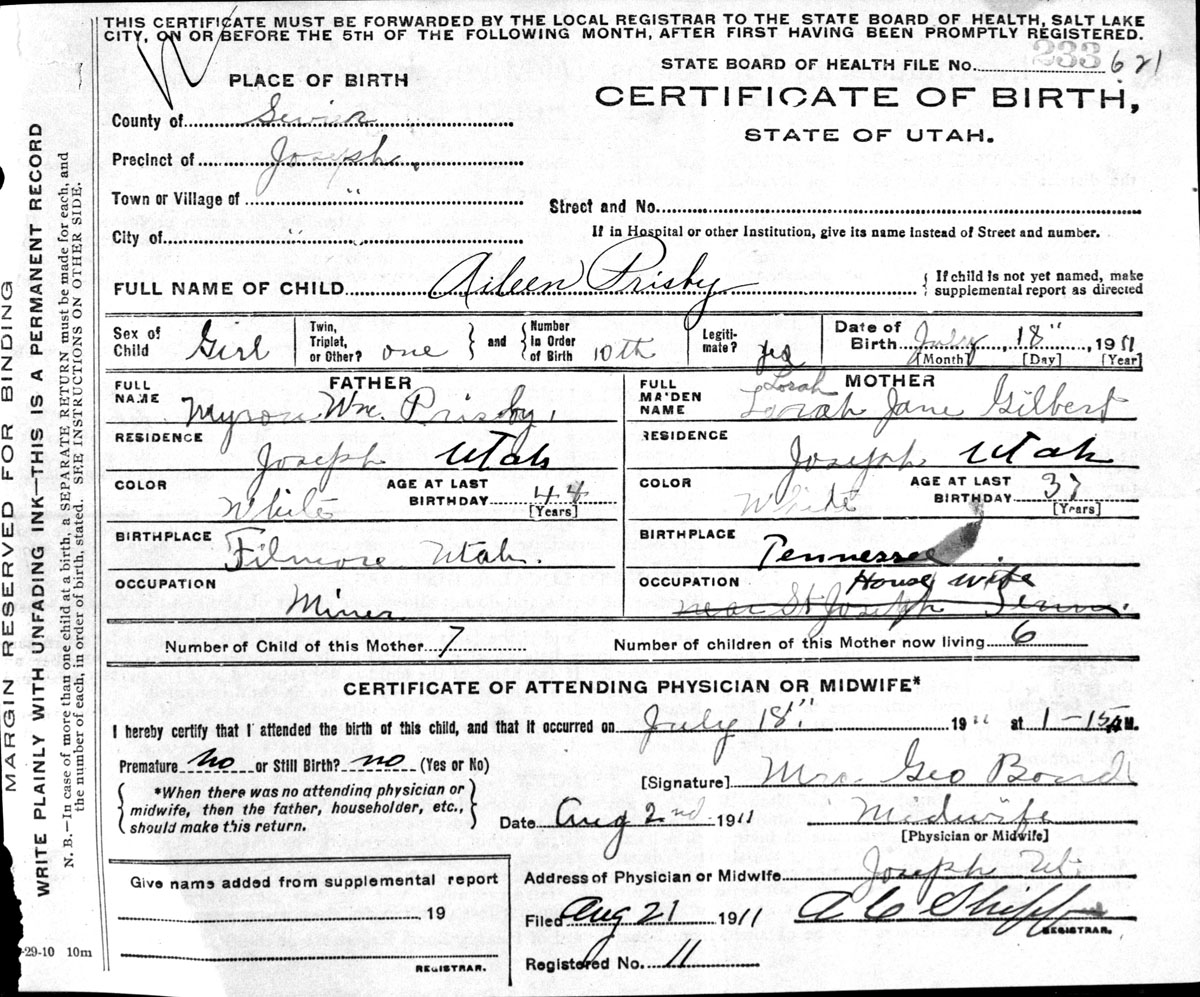 THIS CERTIFICATE MUST BE FORWARDED BY THE LOCAL REGISTRAR TO THE STATE BOARD OF HEALTH, SALT LAKE
CITY, ON OR BEFORE THE 5TH OF THE FOLLOWING MONTH, AFTER FIRST HAVING BEEN PROMPTLY REGISTERED.
STATE BOARD OF HEALTH FILE No. 233 621
PLACE OF BIRTH
CERTIFICATE OF BIRTH,
STATE OF UTAH.
County of Sevier
Precinct of Joseph.
Town or Village of "
Street and No.
City of "
If in Hospital or other Institution, give its name instead of Street and number.
FULL NAME OF CHILD Aileen Prisby
{ If child is not yet named, make
supplemental report as directed
Sex of Child Girl
Twin, Triplet, or Other? one } and { Number in Order of Birth 10th
Legitimate? yes
Date of Birth July 18" 1911
[Month] [Day] [Year]
FATHER
FULL NAME Myron Wm. Prisby,
RESIDENCE Joseph Utah
COLOR White AGE AT LAST BIRTHDAY 44
[Years]
BIRTHPLACE Filmore Utah.
OCCUPATION Miner
MOTHER
Lorah
FULL MAIDEN NAME Lorah Jane Gilbert
RESIDENCE Joseph Utah
COLOR White AGE AT LAST BIRTHDAY 37
[Years]
BIRTHPLACE Tennessee.
OCCUPATION House wife
near St Joseph Tenn.
Number of Child of this Mother 7
Number of children of this Mother now living 6
CERTIFICATE OF ATTENDING PHYSICIAN OR MIDWIFE*
I hereby certify that I attended the birth of this child, and that it occurred on July 18" 19 11 at 1-15 A M.
Premature no or Still Birth? no (Yes or No)
[Signature] Mrs Geo Board
{ *When there was no attending physician or
midwife, then the father, householder, etc.,
should make this return. }
Date Aug 2nd 1911
Midwife
[Physician or Midwife]
Address of Physician or Midwife Joseph Ut.
Give name added from supplemental report
19
REGISTRAR.
Filed Aug 21 1911 A C Shipp
REGISTRAR.
Registered No. 11
-29-10 10m
MARGIN RESERVED FOR BINDING
WRITE PLAINLY WITH UNFADING INK—THIS IS A PERMANENT RECORD
N. B.—In case of more than one child at a birth, a SEPARATE RETURN must be made for each, and
the number of each, in order of birth, stated. SEE INSTRUCTIONS ON OTHER SIDE.